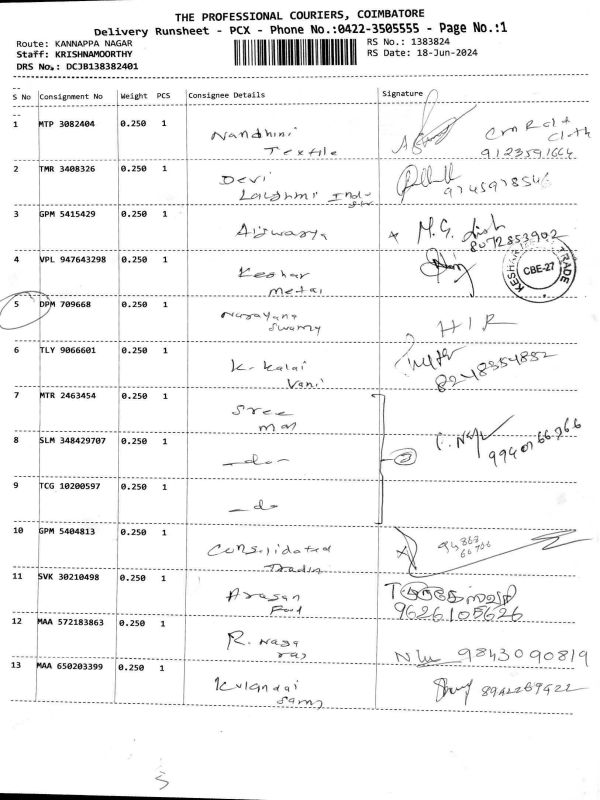 THE PROFESSIONAL COURIERS, COIMBATORE
Delivery Runsheet - PCX - Phone No.:0422-3505555 - Page No.:1
Route: KANNAPPA NAGAR RS No.: 1383824
Staff: KRISHNAMOORTHY RS Date: 18-Jun-2024
DRS No.: DCJB138382401
S No Consignment No Weight PCS Consignee Details Signature
1 MTP 3082404 0.250 1 Nandhini
Textile
9123591664
2 TMR 3408326 0.250 1 Devi
Lakshmi
9745978546
3 GPM 5415429 0.250 1 Aiswarya M.G.
8072853902
4 VPL 947643298 0.250 1 Keshar
metal
KESHAR TRADE
CBE-27
5 DPM 709668 0.250 1 Narayana
Swamy
H I R
6 TLY 9066601 0.250 1 K. Kalai
Vani
8248354852
7 MTR 2463454 0.250 1 Sree
mas
8 SLM 348429707 0.250 1 -do- 3
9 TCG 10200597 0.250 1 -do
10 GPM 5404813 0.250 1 Consolidated
Trading
11 SVK 30210498 0.250 1 Arasan
Food
9626105626
12 MAA 572183863 0.250 1 R. Naga
raj
9843090819
13 MAA 650203399 0.250 1 Kulandai
Samy
8942269922